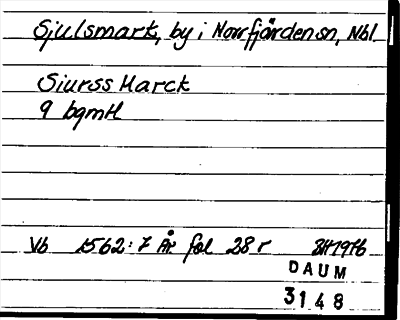 Sjulsmark, by i Norrfjärden sn, Nbl
Siurss Marck
9 bgmtl
Vb 1562:7 År fol 28 r BH 1976
DAUM
3148